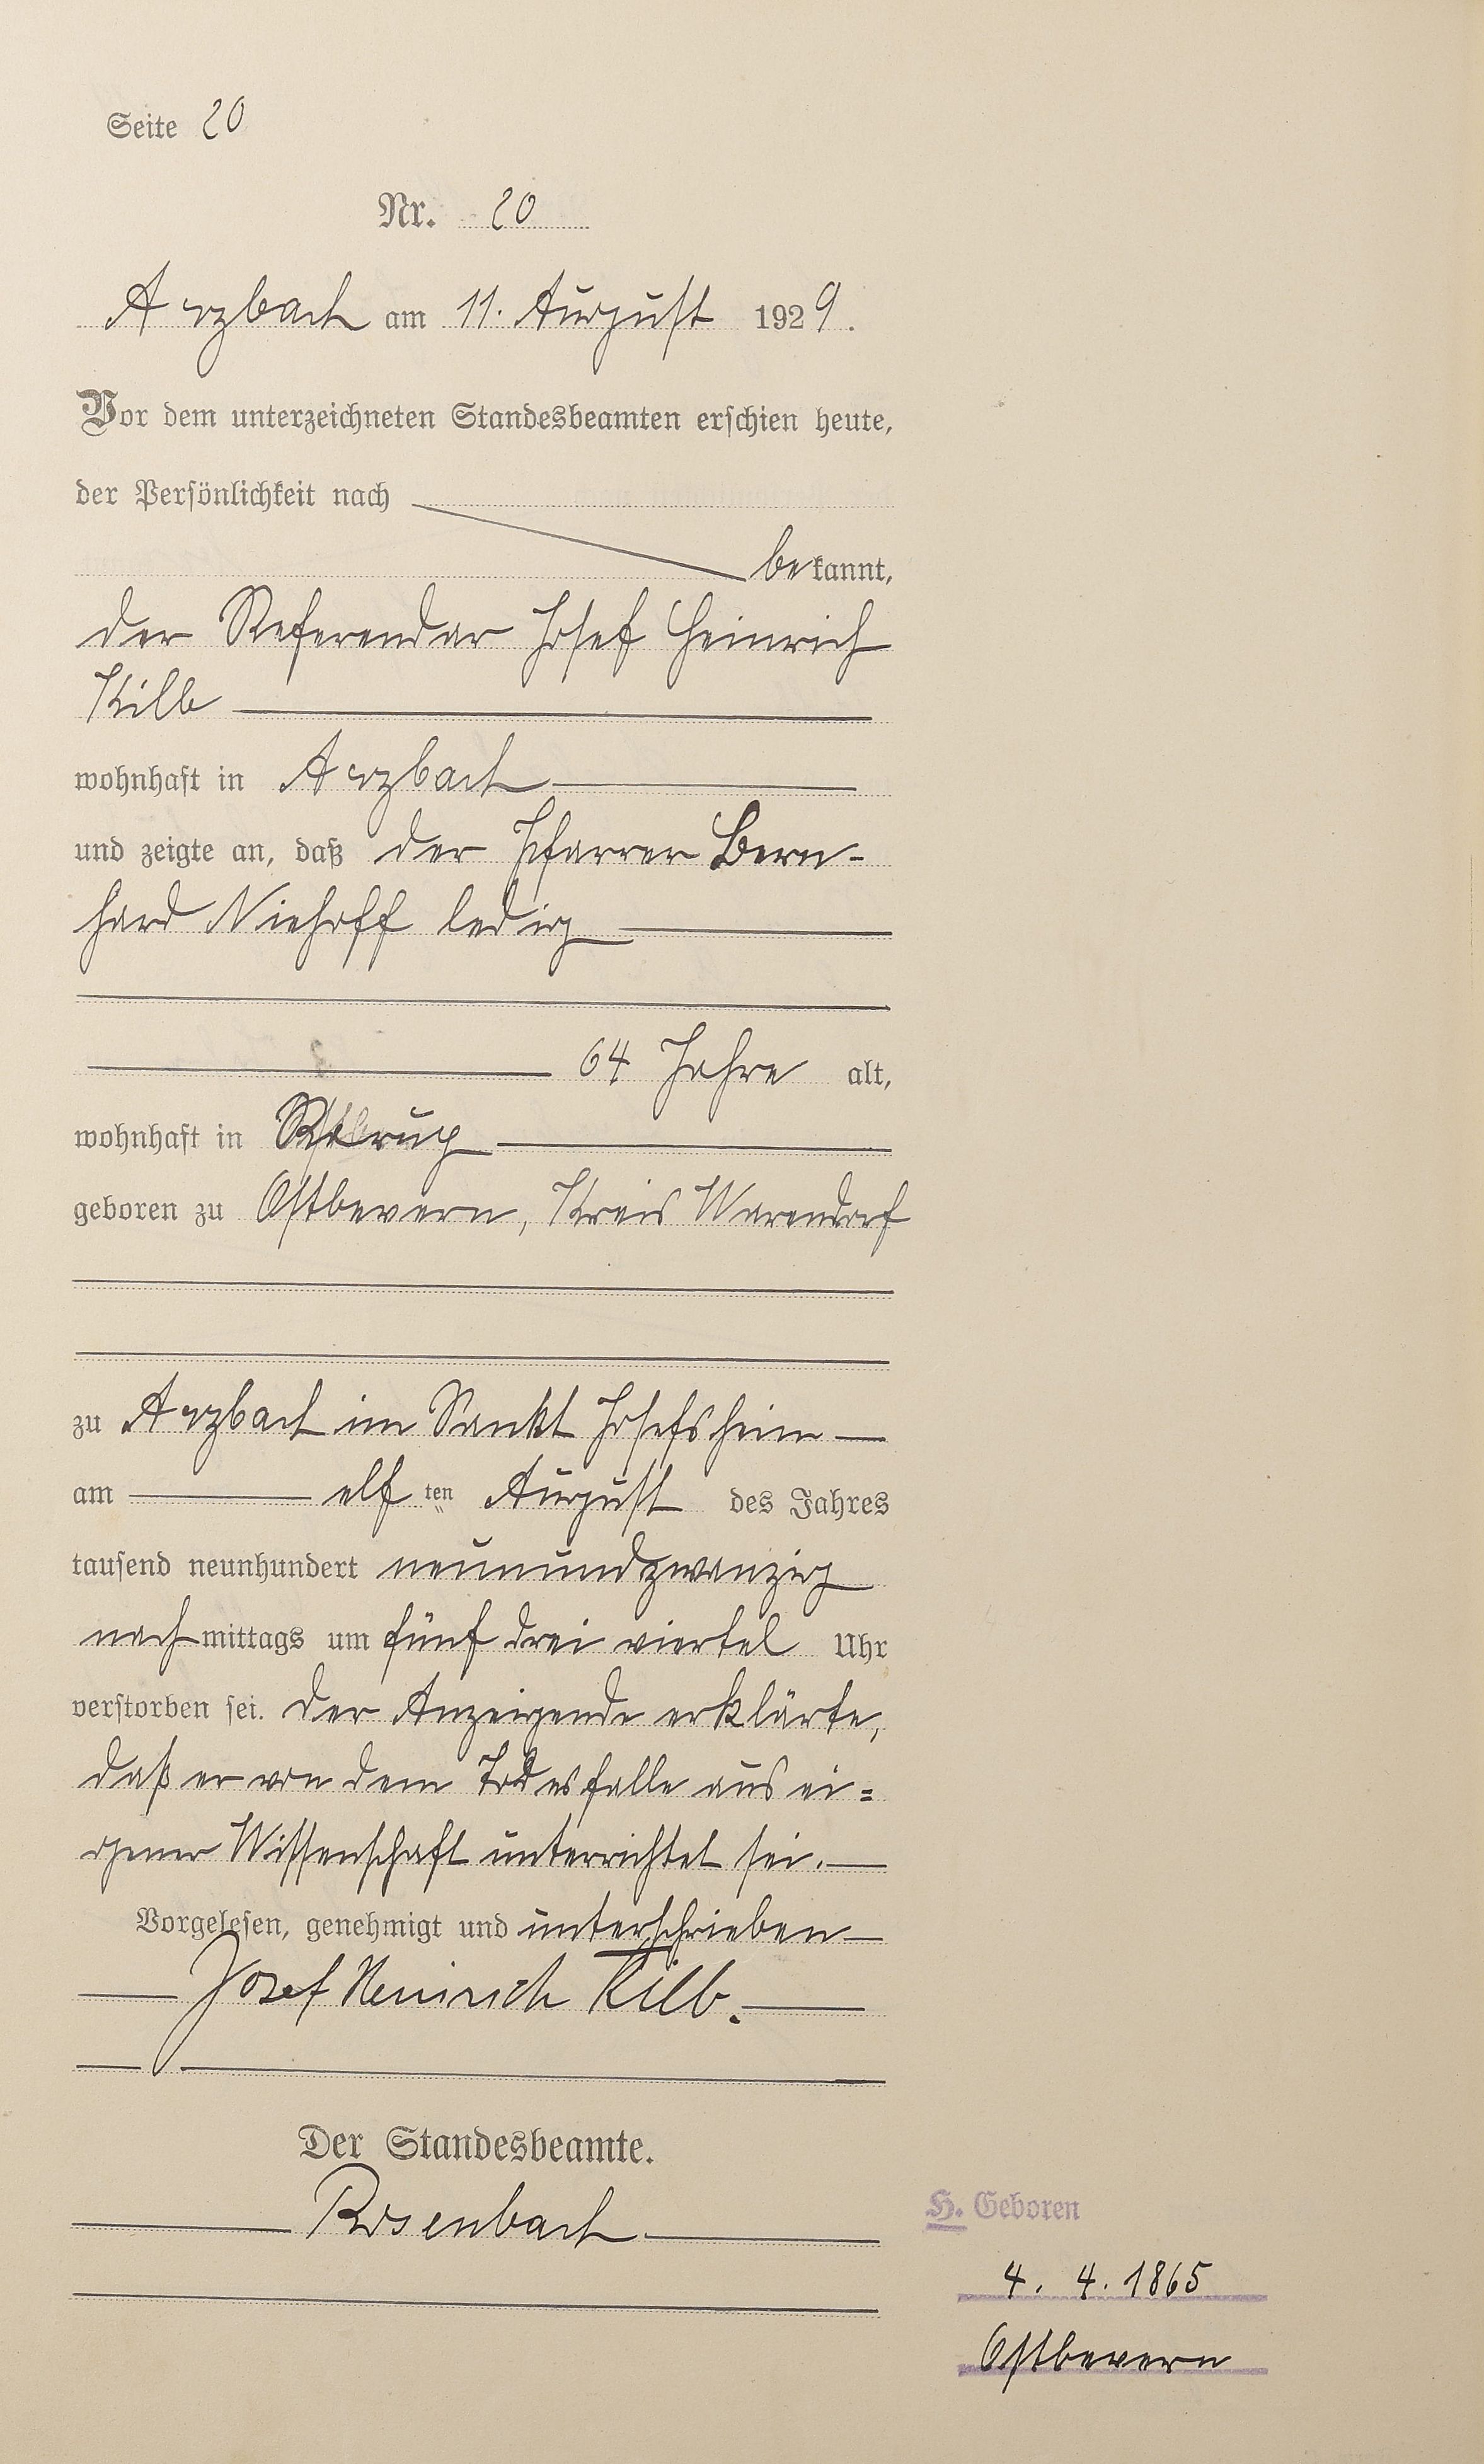 Seite 20
Nr. 20
Arzbach am 11. August 1929.
Vor dem unterzeichneten Standesbeamten erschien heute,
der Persönlichkeit nach
bekannt,
der Referendar Josef Heinrich
Kilb
wohnhaft in Arzbach
und zeigte an, daß der Pfarrer Bern-
hard Niehoff ledig
64 Jahre alt,
wohnhaft in
geboren zu Ostbevern, Kreis Warendorf
zu Arzbach im Sankt Josefsheim
am elf ten August des Jahres
tausend neunhundert neunundzwanzig
nachmittags um fünf drei viertel Uhr
verstorben sei. Der Anzeigende erklärte,
daß er von dem Todesfalle aus ei=
gener Wissenschaft unterrichtet sei.
Vorgelesen, genehmigt und unterschrieben
Josef Heinrich Kilb.
Der Standesbeamte.
Rosenbach
H. Geboren
4. 4. 1865
Ostbevern